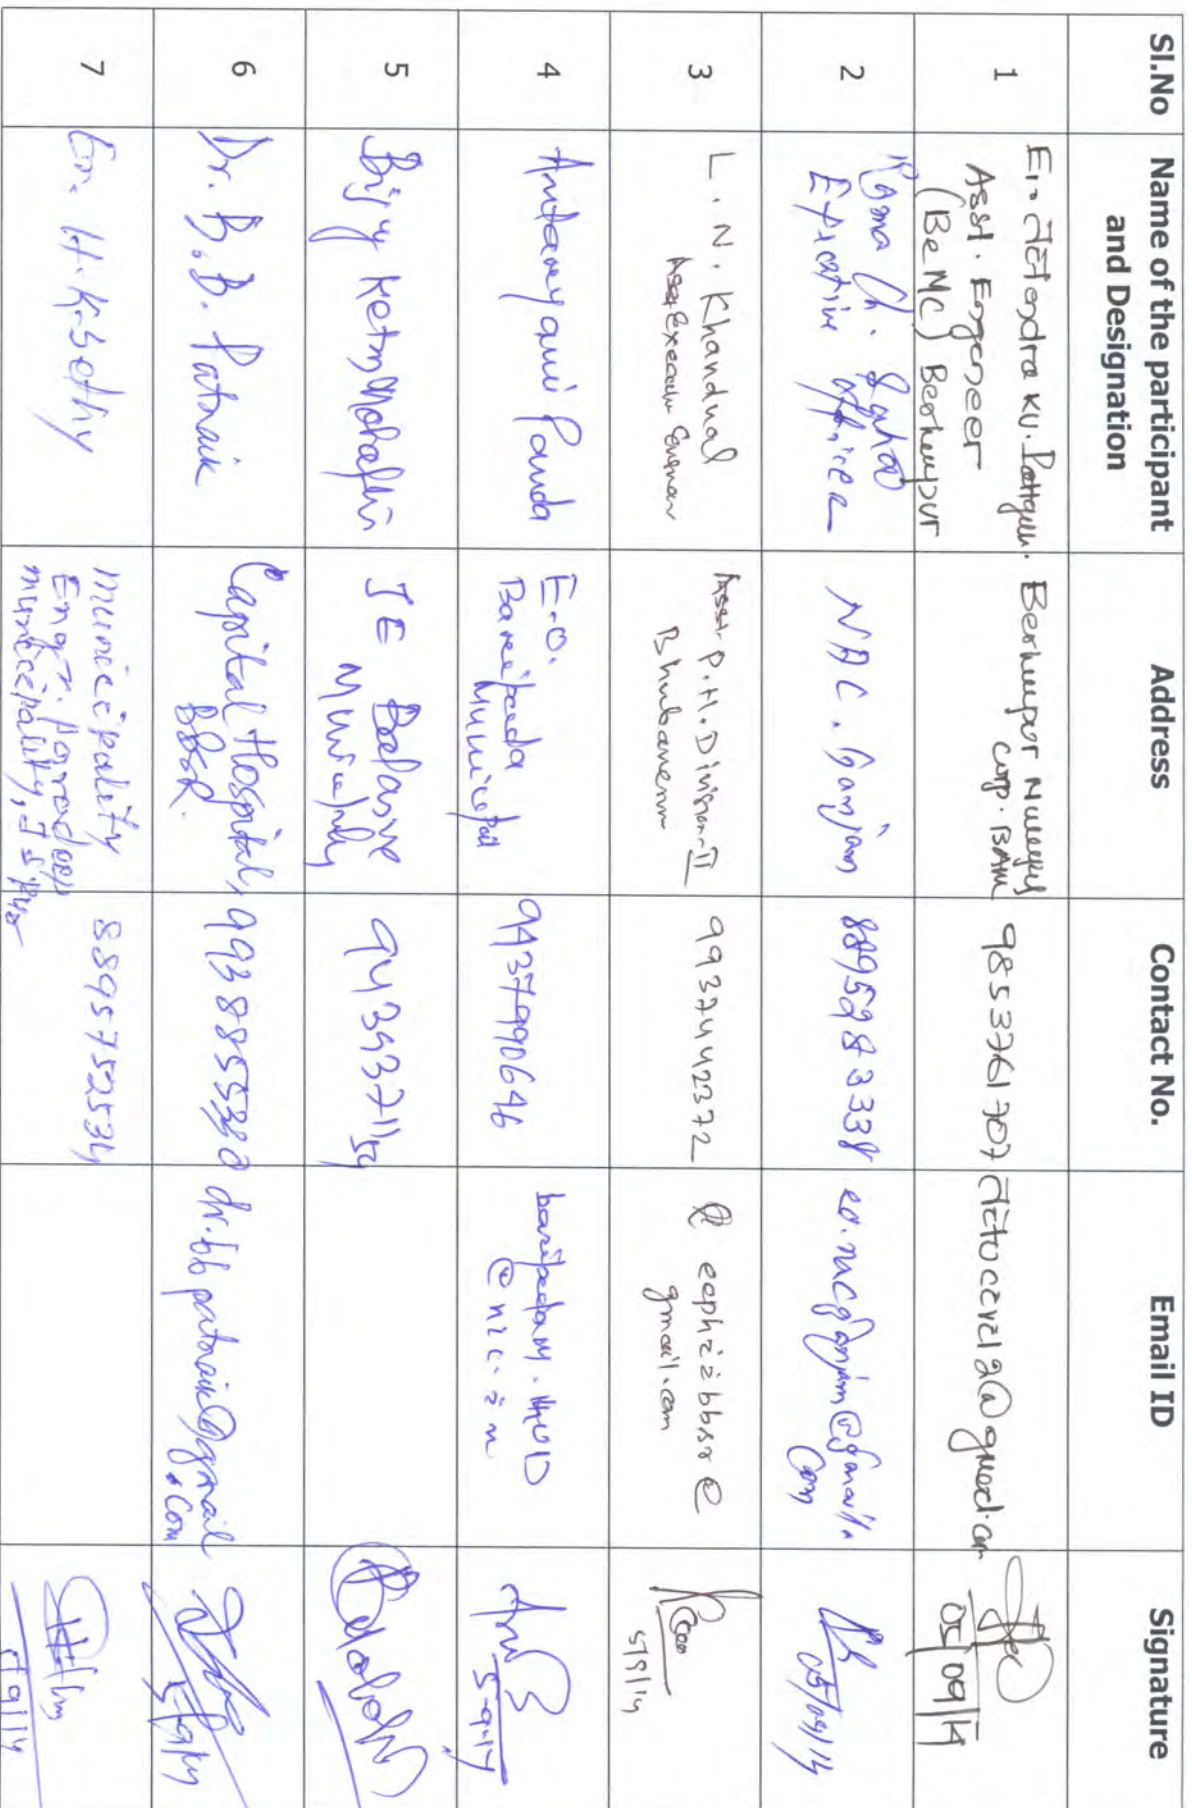 Sl.No
Name of the participant
and Designation
Address
Contact No.
Email ID
Signature
1
Ku.
Asst. Engeneer
(BeMC) Berhampur
Berhampur
Corp. BAM
9853761707
05/09/14
2
Rama Ch. Sahoo
Executive Officer
NAC. Ganjam
8895283338
eo.nacganjam@gmail.
Com
05/09/14
3
L. N. Khandual
Asst. P.H. Division-II
9937442372
eephiibbsr@
gmail.com
5/9/14
4
Panda
E.O.
Baripada
Municipal
9437990646
@nic.in
5-9-14
5
Bijoy Ketan Mohapatra
JE Balasore
Municipality
6
Dr. B.B. Patnaik
Capital Hospital,
BBSR.
9938855360
dr.bbpatnaik@gmail
.com
5/9/14
7
Er. H.K. Sethy
municipality
Engr. Paradeep
municipality, J S Pur
8895752534